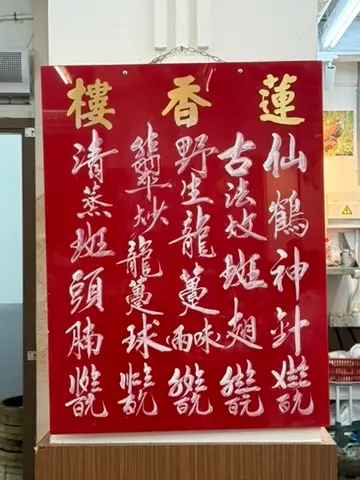 蓮香樓
仙鶴神針
古法炆斑翅
野生龍躉兩味
翡翠炒龍躉球
清蒸斑頭腩